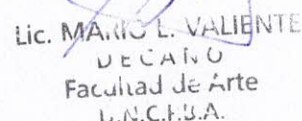 Lic. MARIO L. VALIENTE
DECANO
Facultad de Arte
U.N.C.P.B.A.